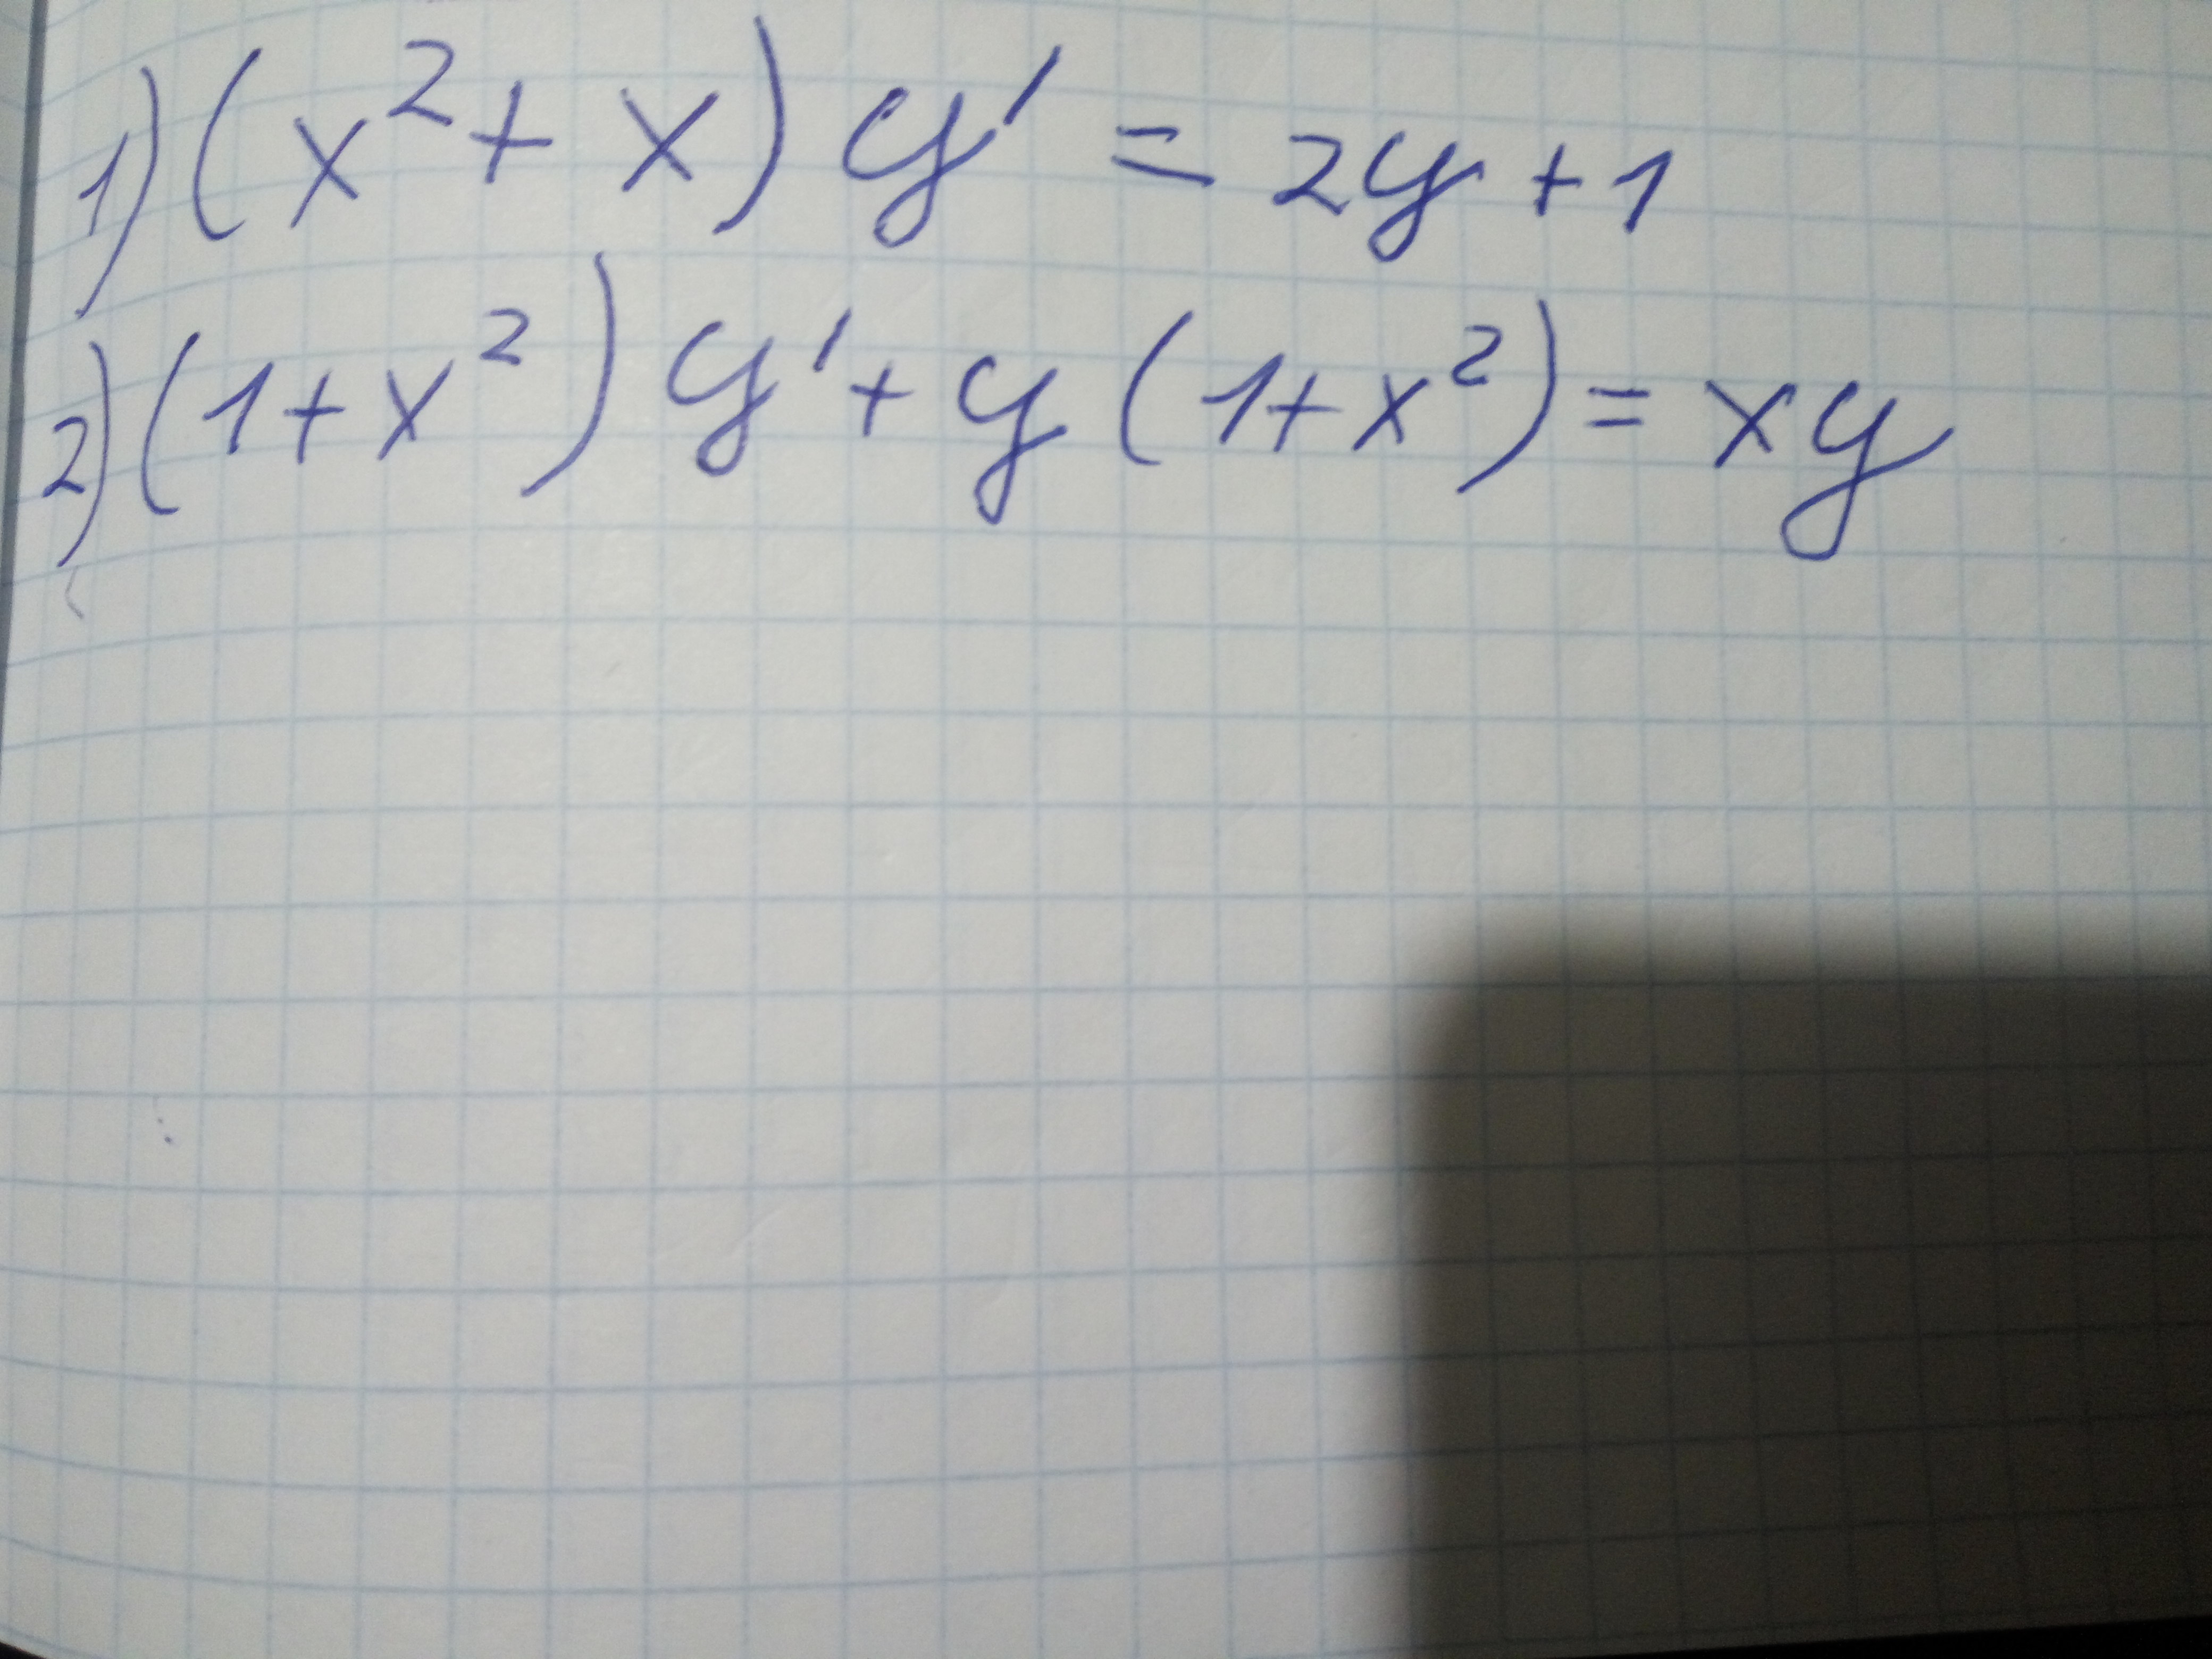 1) (x² + x) y' = 2y + 1
2) (1 + x²) y' + y (1 + x²) = xy